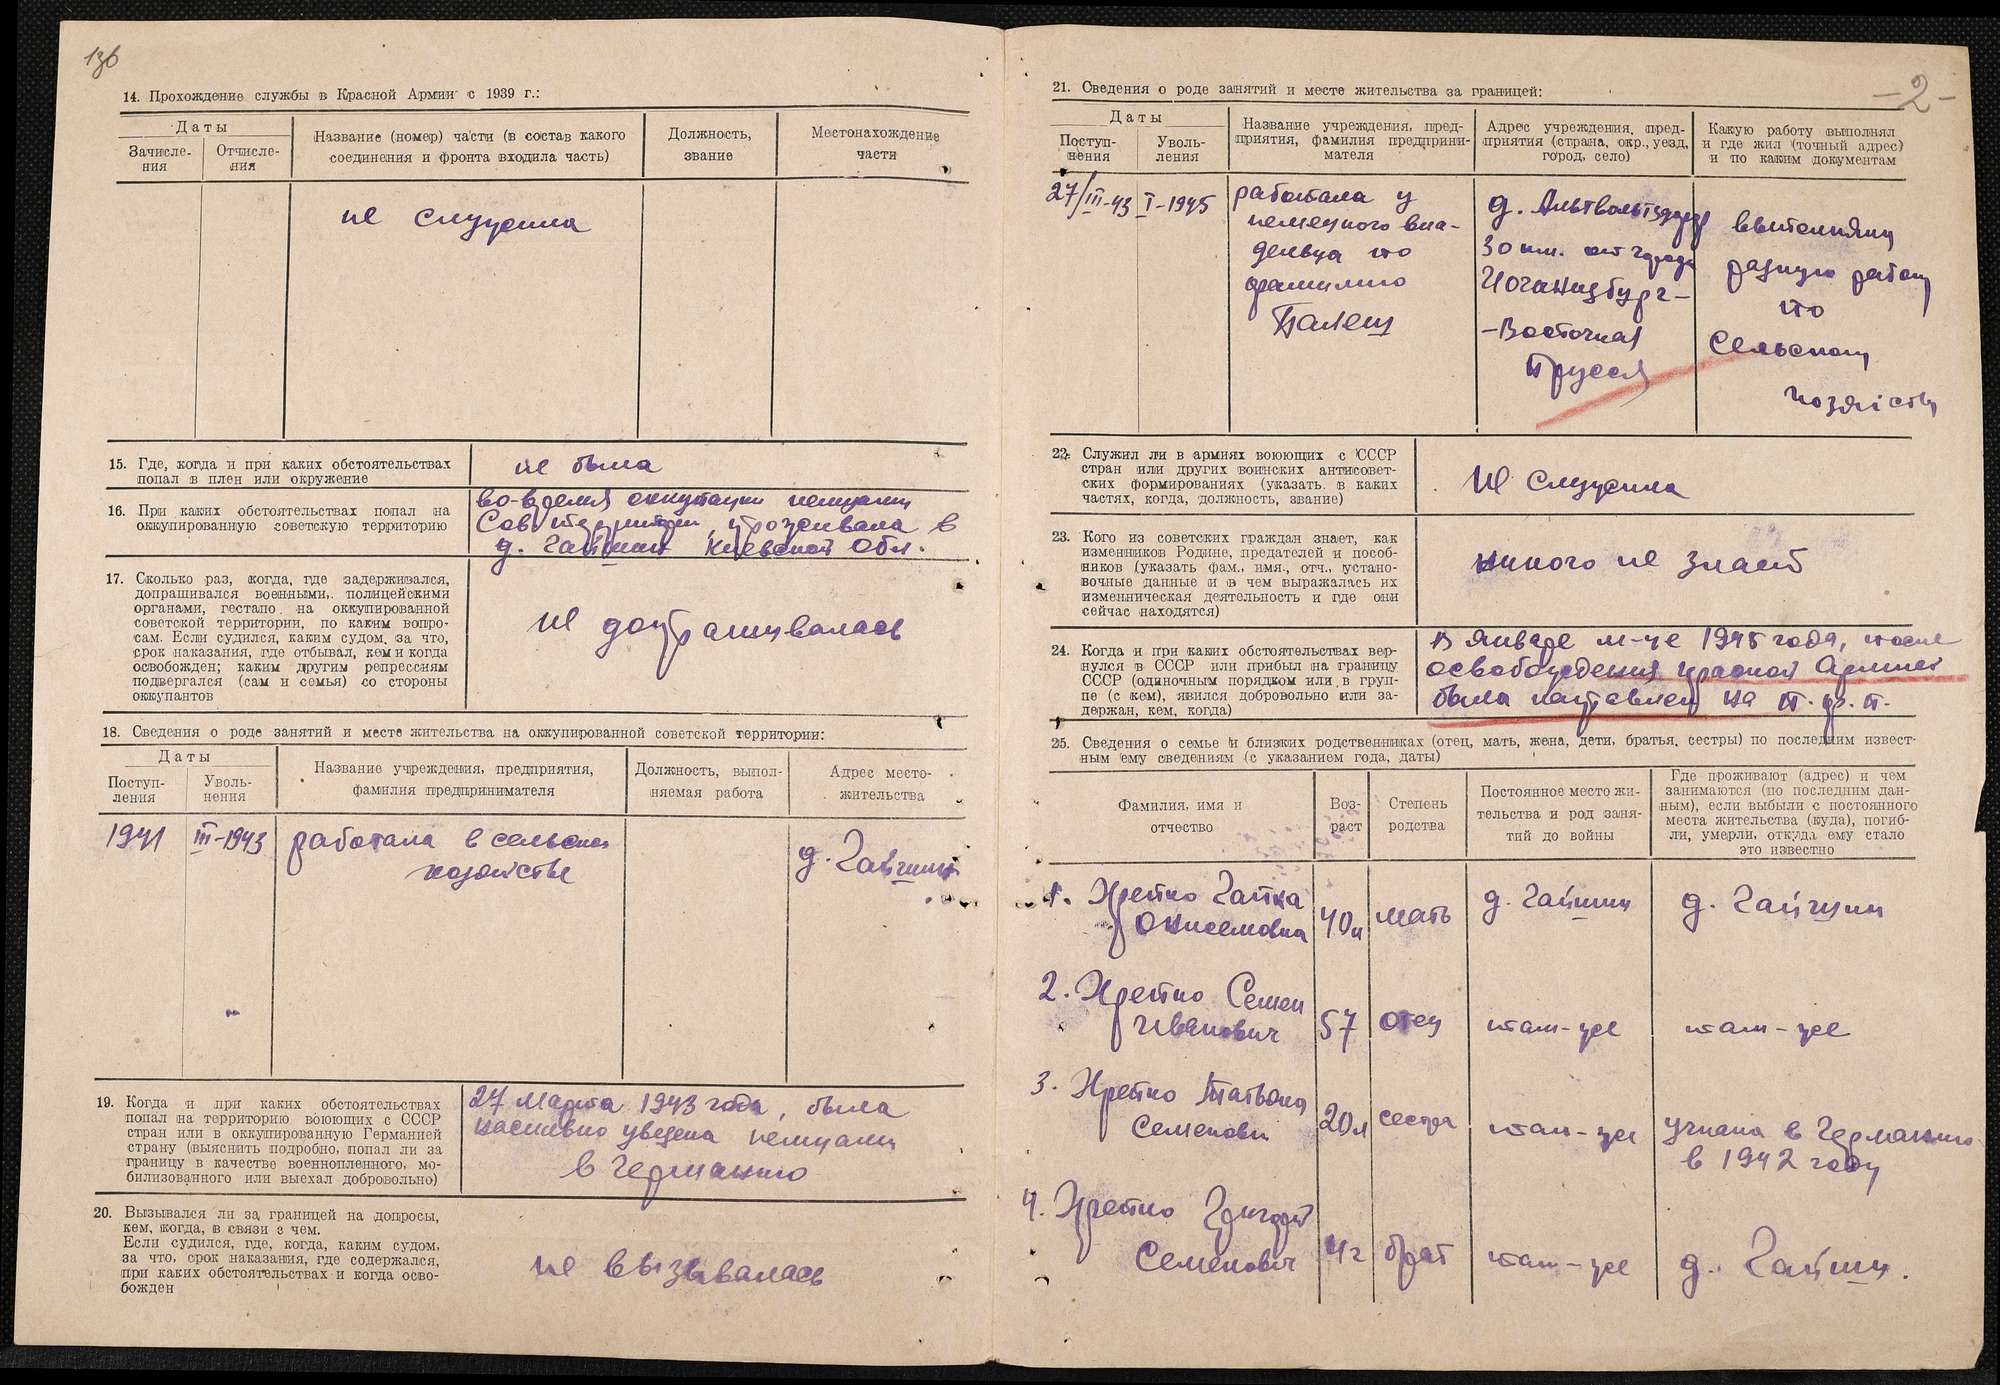 136
14. Прохождение службы в Красной Армии с 1939 г.:
Даты
Зачисле-
ния
Отчисле-
ния
Название (номер) части (в состав какого
соединения и фронта входила часть)
Должность,
звание
Местонахождение
части
не служила
15. Где, когда и при каких обстоятельствах
попал в плен или окружение
не была
16. При каких обстоятельствах попал на
оккупированную советскую территорию
во-время оккупации немцами
Сов. территории, проживала в
д. Гайшин Киевской Обл.
17. Сколько раз, когда, где задерживался,
допрашивался военными, полицейскими
органами, гестапо на оккупированной
советской территории, по каким вопро-
сам. Если судился, каким судом, за что,
срок наказания, где отбывал, кем и когда
освобожден; каким другим репрессиям
подвергался (сам и семья) со стороны
оккупантов
не допрашивалась
18. Сведения о роде занятий и месте жительства на оккупированной советской территории:
Даты
Поступ-
ления
Уволь-
нения
Название учреждения, предприятия,
фамилия предпринимателя
Должность, выпол-
няемая работа
Адрес место-
жительства
1941
III-1943
работала в сельском
хозяйстве
д. Гайшин
19. Когда и при каких обстоятельствах
попал на территорию воюющих с СССР
стран или в оккупированную Германией
страну (выяснить подробно, попал ли за
границу в качестве военнопленного, мо-
билизованного или выехал добровольно)
27 Марта 1943 года, была
насильно уведена немцами
в Германию
20. Вызывался ли за границей на допросы,
кем, когда, в связи с чем.
Если судился, где, когда, каким судом,
за что, срок наказания, где содержался,
при каких обстоятельствах и когда осво-
божден
не вызывалась
-2-
21. Сведения о роде занятий и месте жительства за границей:
Даты
Поступ-
ления
Уволь-
нения
Название учреждения, пред-
приятия, фамилия предприни-
мателя
Адрес учреждения, пред-
приятия (страна, окр., уезд,
город, село)
Какую работу выполнял
и где жил (точный адрес)
и по каким документам
27/III-43
I-1945
работала у
немецкого вла-
дельца по
фамилию
Палеш
д. Альтвольтсдорф
30 км. от города
Иоганизбург-
-Восточная
Пруссия
выполняла
разную работу
по
сельскому
хозяйству
22. Служил ли в армиях воюющих с СССР
стран или других воинских антисовет-
ских формированиях (указать в каких
частях, когда, должность, звание)
не служила
23. Кого из советских граждан знает, как
изменников Родине, предателей и пособ-
ников (указать фам., имя., отч., устано-
вочные данные и в чем выражалась их
изменническая деятельность и где они
сейчас находятся)
никого не знает
24. Когда и при каких обстоятельствах вер-
нулся в СССР или прибыл на границу
СССР (одиночным порядком или в груп-
пе (с кем), явился добровольно или за-
держан, кем, когда)
В январе м-це 1945 года, после
освобождения красной Армией
была направлен на п. ф. п.
25. Сведения о семье и близких родственниках (отец, мать, жена, дети, братья, сестры) по последним извест-
ным ему сведениям (с указанием года, даты)
Фамилия, имя и
отчество
Воз-
раст
Степень
родства
Постоянное место жи-
тельства и род заня-
тий до войны
Где проживают (адрес) и чем
занимаются (по последним дан-
ным), если выбыли с постоянного
места жительства (куда), погиб-
ли, умерли, откуда ему стало
это известно
1. Хрепко Гапка
Онисемовна
40 л
мать
д. Гайшин
д. Гайшин
2. Хрепко Семен
Иванович
57
отец
там-же
там-же
3. Хрепко Татьяна
Семеновн
20 л
сестра
там-же
угнана в Германию
в 1942 году
4. Хрепко Григорий
Семенович
4 г
брат
там-же
д. Гайшин.